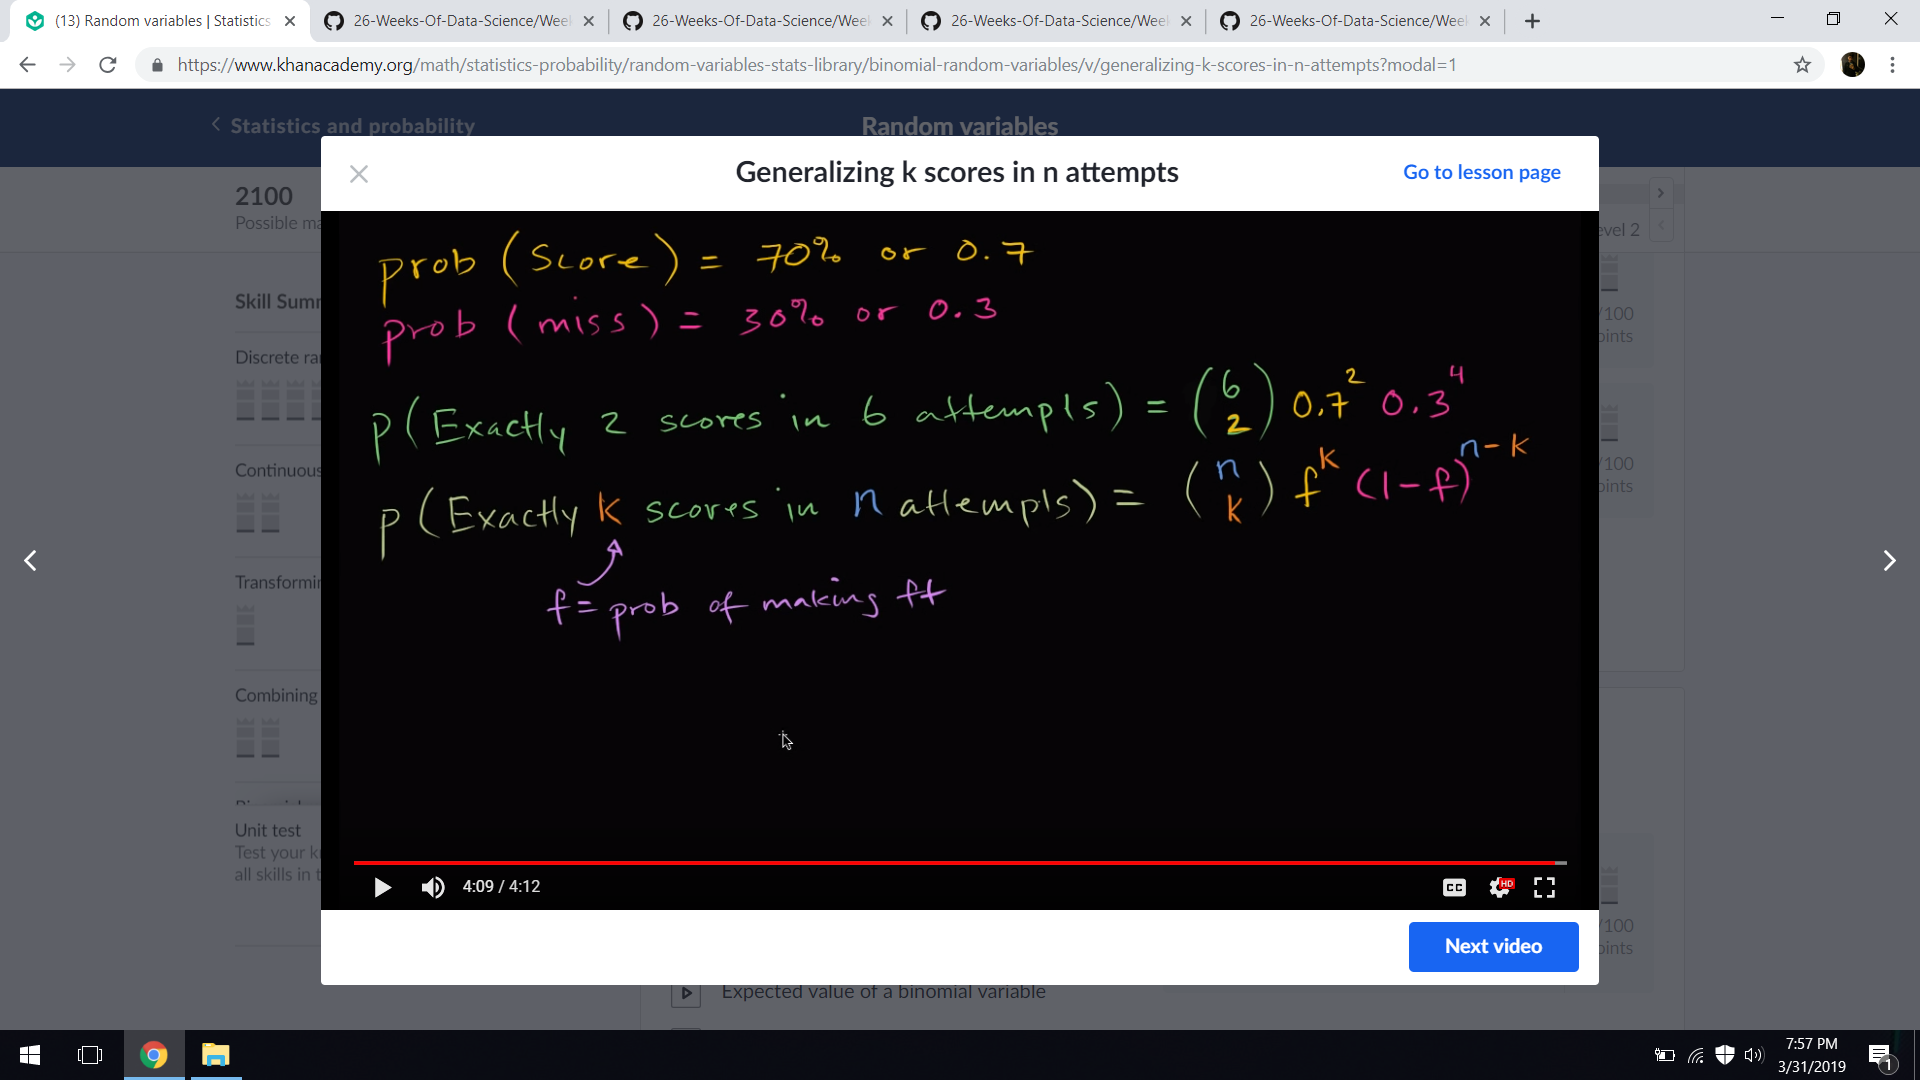 (13) Random variables | Statistics
26-Weeks-Of-Data-Science/Wee
26-Weeks-Of-Data-Science/Wee
26-Weeks-Of-Data-Science/Wee
26-Weeks-Of-Data-Science/Wee
https://www.khanacademy.org/math/statistics-probability/random-variables-stats-library/binomial-random-variables/v/generalizing-k-scores-in-n-attempts?modal=1
Statistics and probability
Random variables
Generalizing k scores in n attempts
Go to lesson page
2100
Possible ma
evel 2
Skill Summ
Discrete ra
Continuous
Transformin
Combining
Unit test
Test your k
all skills in t
/100
oints
/100
oints
/100
oints
prob (Score) = 70% or 0.7
prob (miss) = 30% or 0.3
p(Exactly 2 scores in 6 attempts) = (6 2) 0.7² 0.3⁴
p(Exactly k scores in n attempts) = (n k) f^k (1-f)^n-k
f = prob of making ft
4:09 / 4:12
CC
HD
Next video
Expected value of a binomial variable
7:57 PM
3/31/2019
1